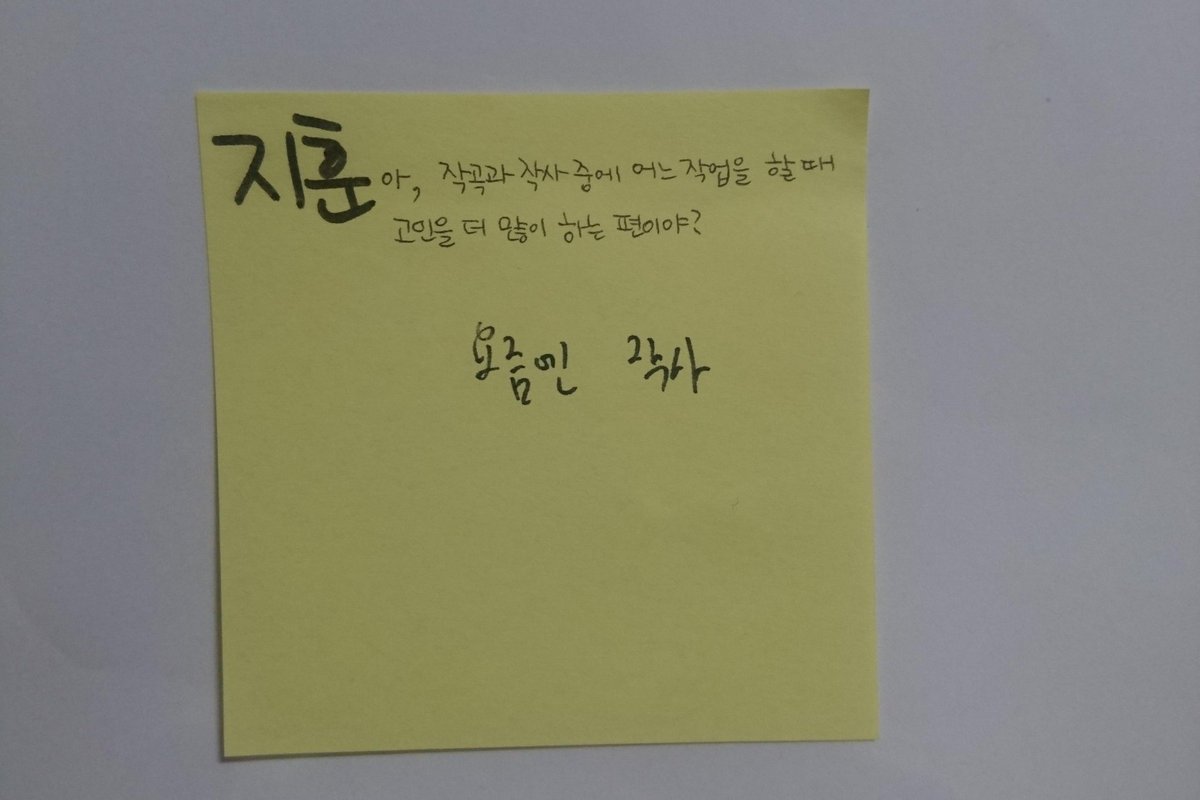 지훈아, 작곡과 작사 중에 어느 작업을 할 때
고민을 더 많이 하는 편이야?
요즘엔 작사